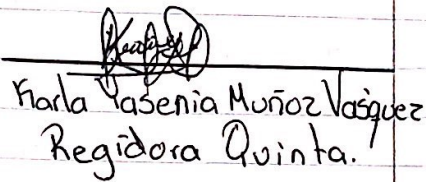 Karla Yasenia Muñoz Vasquez
Regidora Quinta.